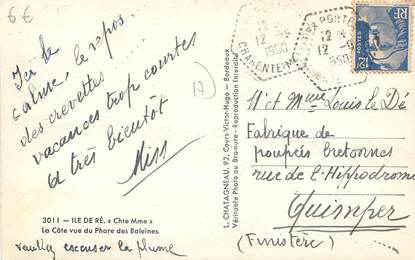 6€
Ici le
calme, le repos.
des crevettes
vacances trop courtes
à très bientôt
Miss
17
3011 - ILE DE RÉ. « Chte Mme »
La Côte vue du Phare des Baleines
veuillez excuser la plume
L. CHATAGNEAU, 92, Cours Victor-Hugo - Bordeaux
Véritable Photo au Bromure - Reproduction Interdite
12 -9
1950
CHARENTE
PORTES
12 -9
1950
POSTES
RF
Mr et Mme Louis le Dé
Fabrique de
poupées bretonnes
rue de l'Hippodrome
Quimper
(Finistère)